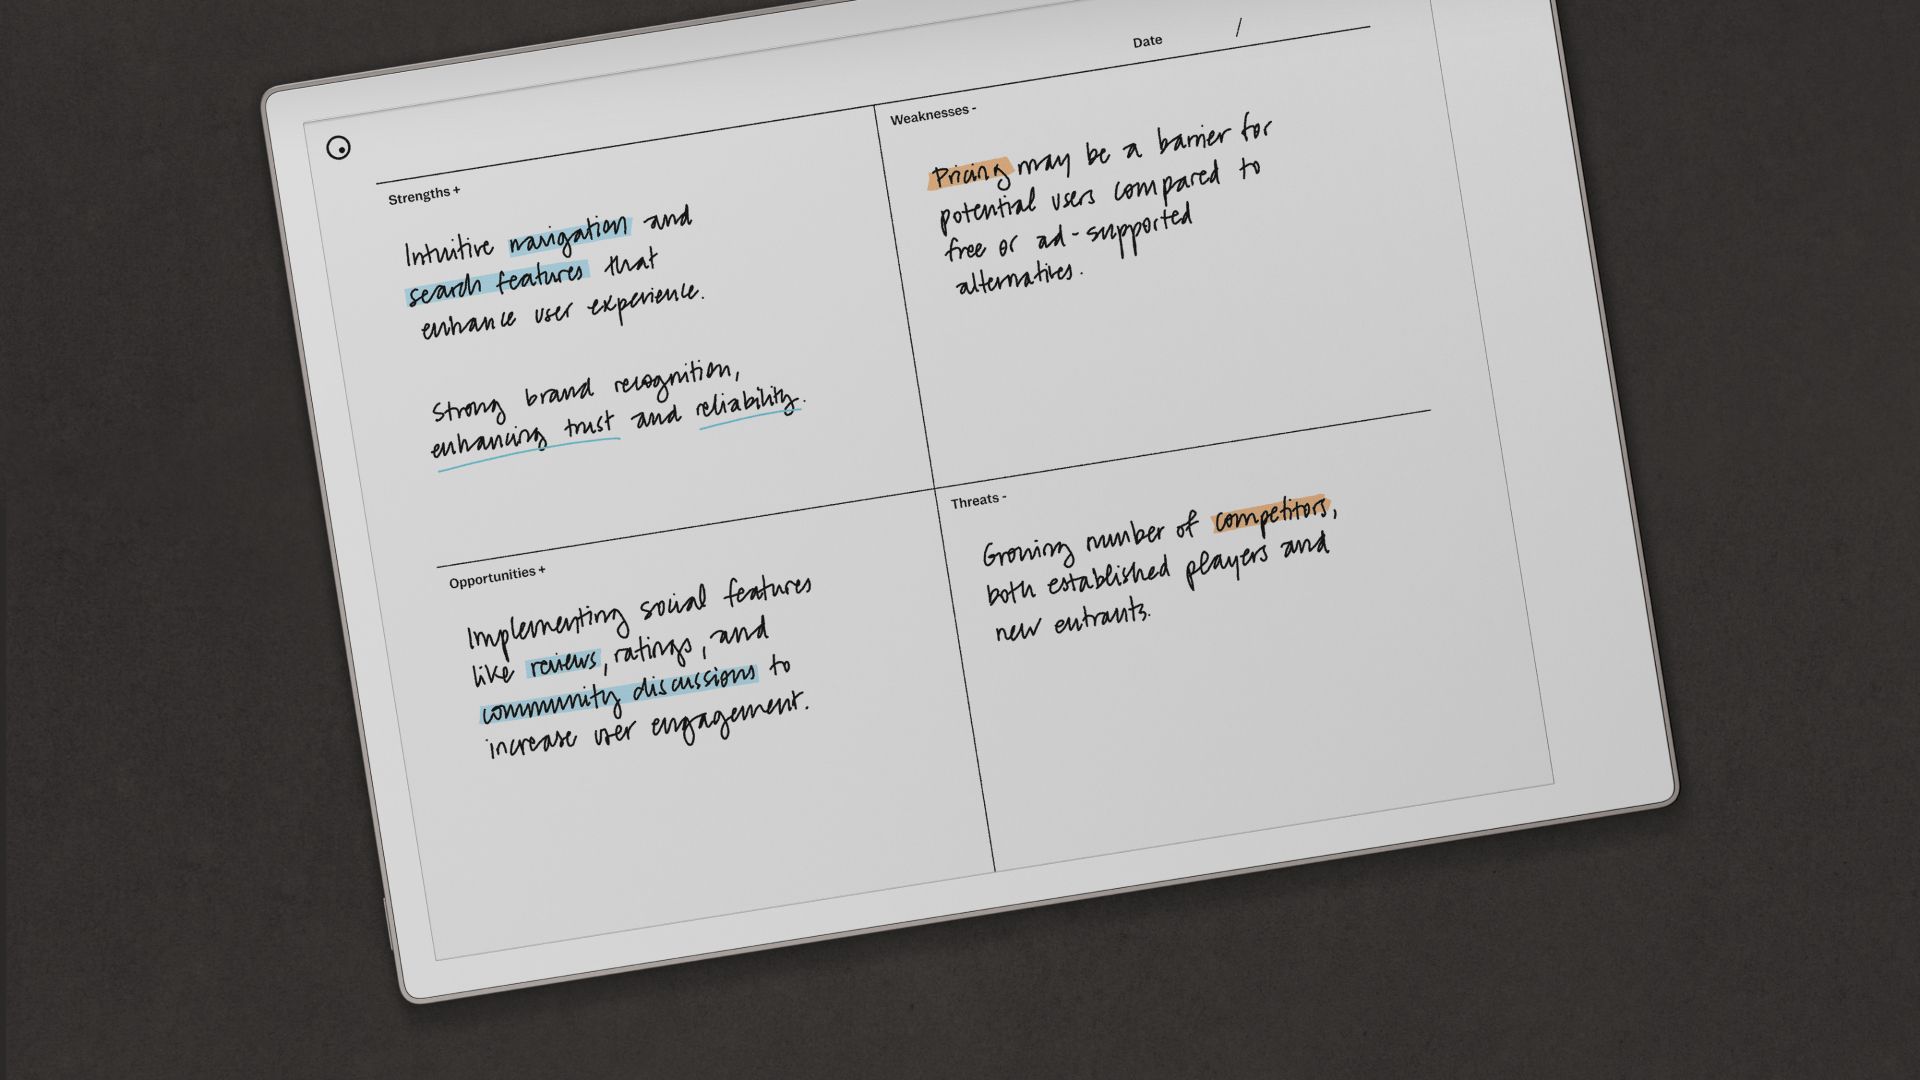 Date /
Strengths +
Intuitive navigation and
search features that
enhance user experience.
Strong brand recognition,
enhancing trust and reliability.
Weaknesses -
Pricing may be a barrier for
potential users compared to
free or ad-supported
alternatives.
Opportunities +
Implementing social features
like reviews, ratings, and
community discussions to
increase user engagement.
Threats -
Growing number of competitors,
both established players and
new entrants.